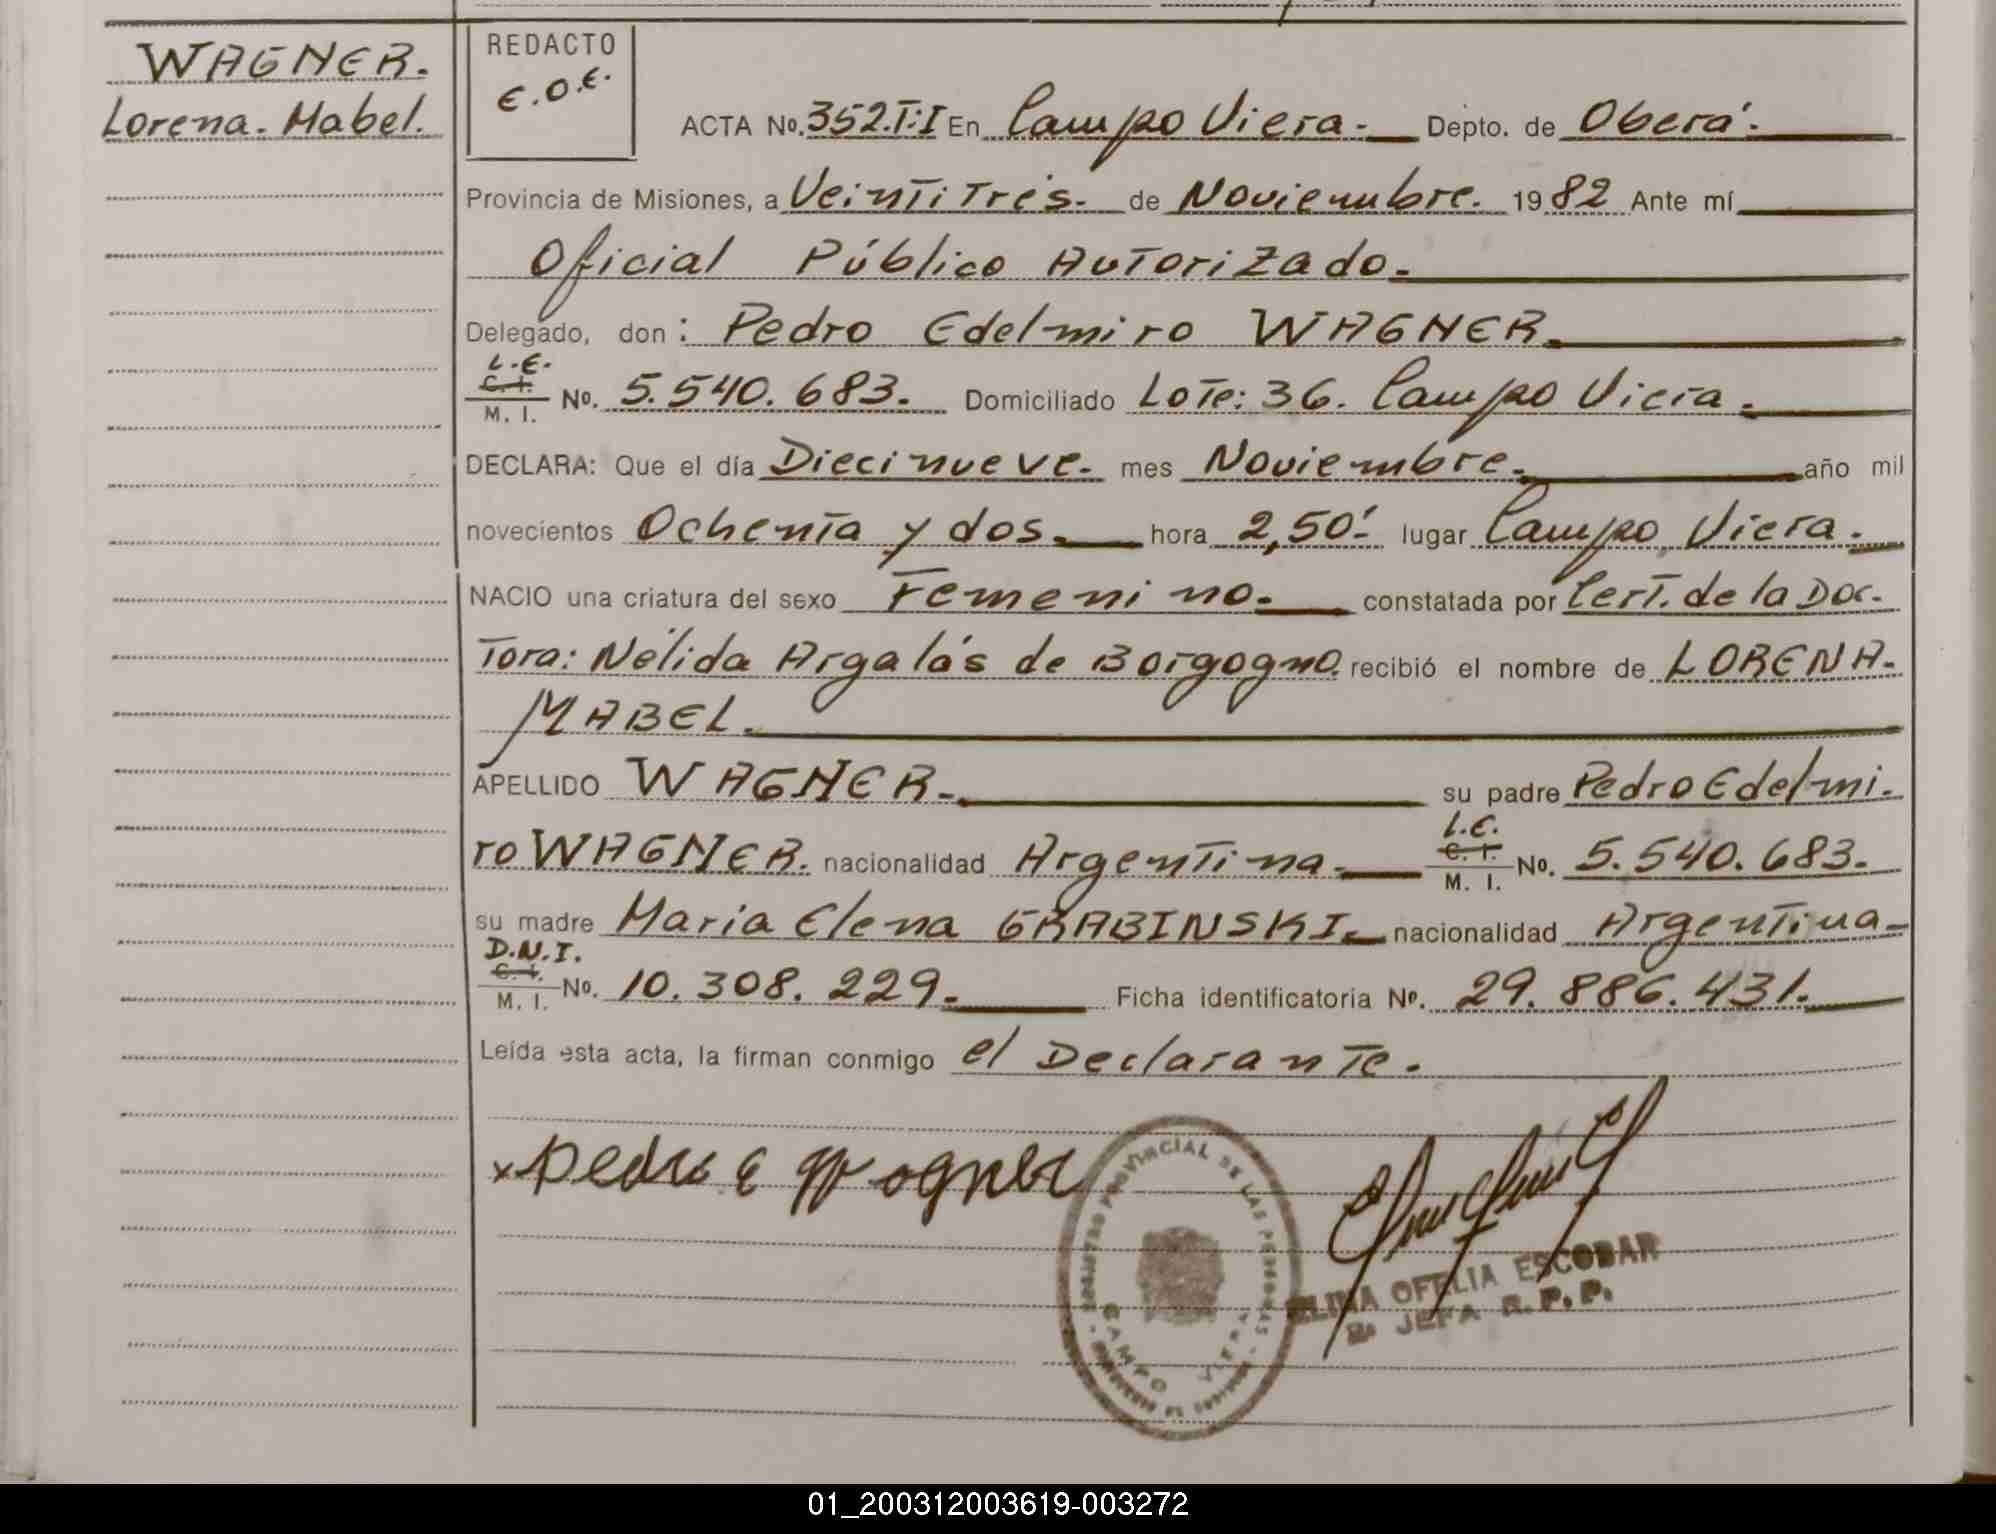 WAGNER.
Lorena. Mabel.
REDACTO
E.O.E.
ACTA No. 352.T:I En Campo Viera.- Depto. de Oberá.-
Provincia de Misiones, a Veintitrés.- de Noviembre. 1982 Ante mí
Oficial Público Autorizado.-
Delegado, don: Pedro Edelmiro WAGNER.
L.E.
C. I.
M. I. No. 5.540.683. Domiciliado Lote: 36. Campo Viera.-
DECLARA: Que el día Diecinueve.- mes Noviembre.- año mil
novecientos Ochenta y dos.- hora 2,50'- lugar Campo Viera.-
NACIO una criatura del sexo Femenino.- constatada por Cert. de la Doc-
tora: Nélida Argalás de Borgogno. recibió el nombre de LORENA-
MABEL.
APELLIDO WAGNER.- su padre Pedro Edelmi-
ro WAGNER. nacionalidad Argentina.- L.E.
C. I.
M. I. No. 5.540.683.
su madre Maria Elena GRABINSKI.- nacionalidad Argentina-
D.N.I.
C. I.
M. I. No. 10.308.229.- Ficha identificatoria No. 29.886.431.
Leída esta acta, la firman conmigo el Declarante.
x Pedro E Wagner
REGISTRO PROVINCIAL DE LAS PERSONAS
CAMPO VIERA
ELINA OFELIA ESCOBAR
JEFA R.P.P.
01_200312003619-003272